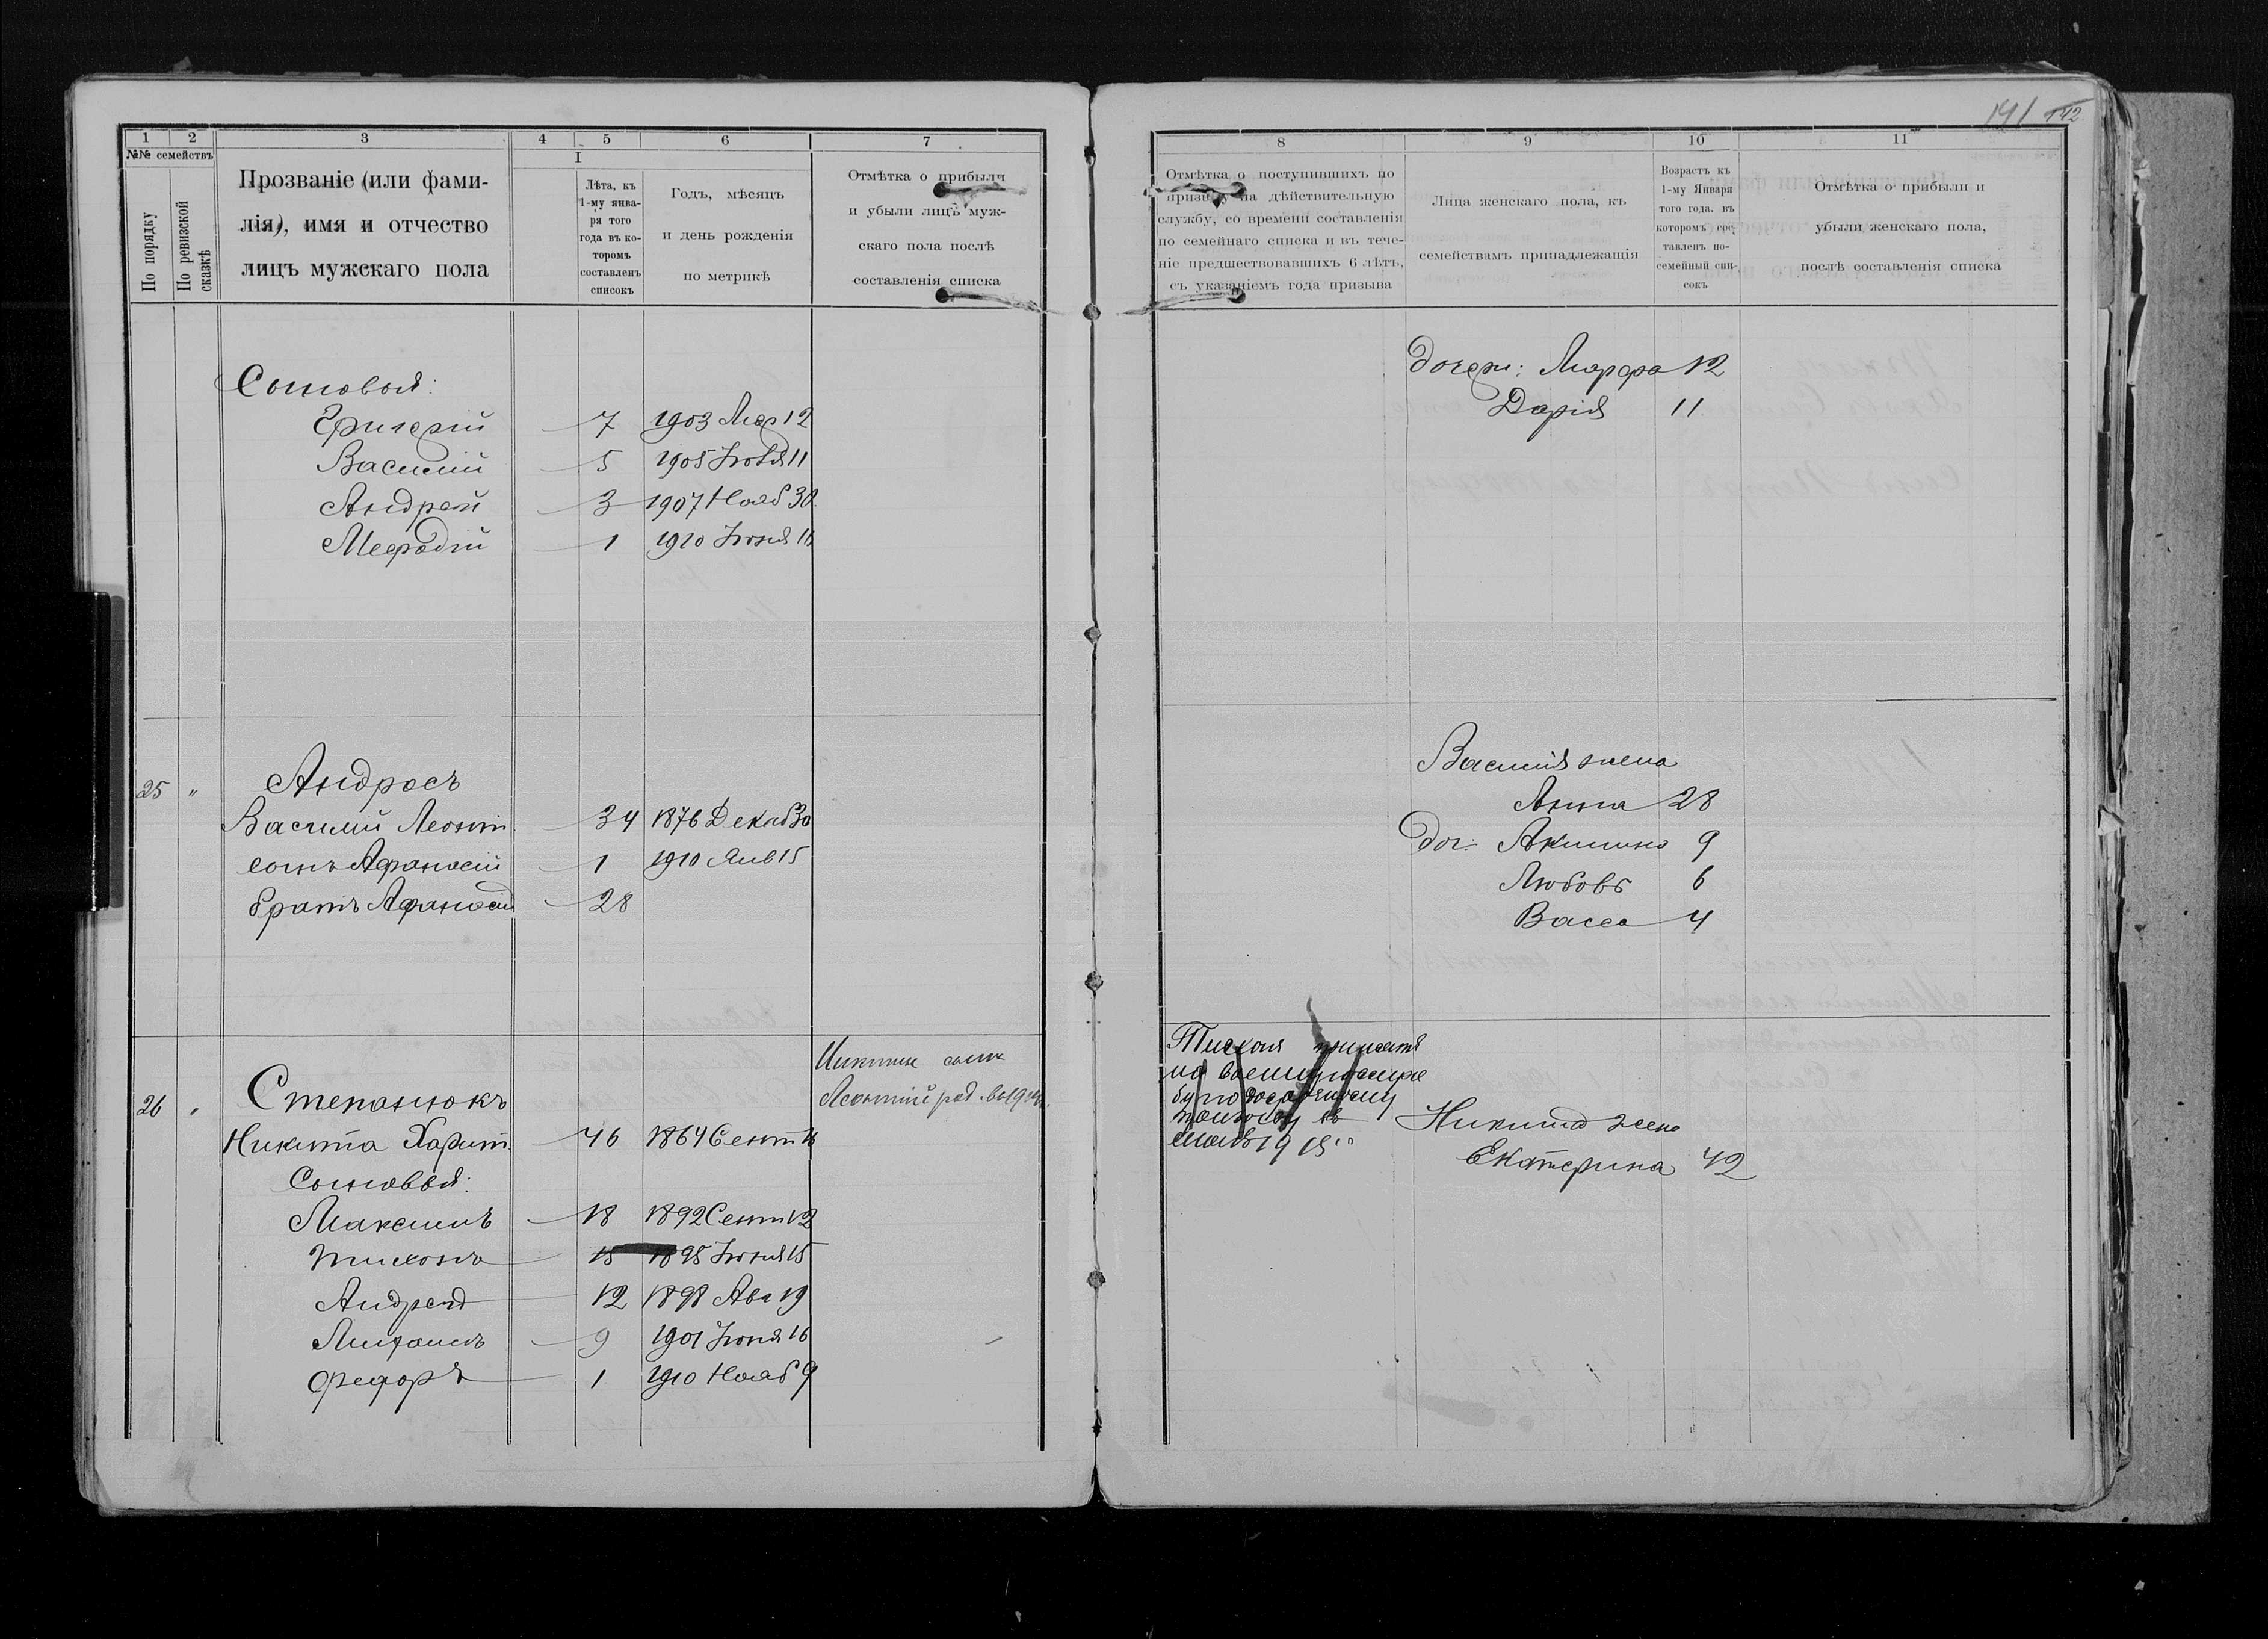 1 2 3 4 5 6 7
№№ семействъ
По порядку
По ревизской сказкѣ
Прозваніе (или фами-
лія), имя и отчество
лицъ мужскаго пола
I
Лѣта, къ
1-му янва-
ря того
года въ ко-
торомъ
составленъ
списокъ
Годъ, мѣсяцъ
и день рожденія
по метрикѣ
Отмѣтка о прибыли
и убыли лицъ муж-
скаго пола послѣ
составленія списка
Сыновья:
Григорій 7 1903 Мар 12
Василій 5 1905 11
Андрей 3 1907 Нояб 30
Мефодій 1 1910 Іюня 11
25 " Андросъ
Василій Леонт. 34 1876 Декаб 30
сынъ Афанасій 1 1910 Янв 15
братъ Афанасій 28
Никиты сынъ
Леонтій род. въ
26 " Степанюкъ
Никита Харит. 46 1864 Сент
Сыновья:
Максимъ 18 1892 Сент 12
Тихонъ 15 1895 Іюня 15
Андрей 12 1898 Авг 19
9 1901 Іюня 16
Федоръ 1 1910 Нояб 9
141 142
8 9 10 11
Отмѣтка о поступившихъ по
призыву на дѣйствительную
службу, со времени составленія
по семейнаго списка и въ тече-
ніе предшествовавшихъ 6 лѣтъ,
съ указаніемъ года призыва
Лица женскаго пола, къ
семействамъ принадлежащія
Возрастъ къ
1-му Января
того года, въ
которомъ сос-
тавленъ по-
семейный спи-
сокъ
Отмѣтка о прибыли и
убыли женскаго пола,
послѣ составленія списка
дочери: Марфа 12
Дарія 11
Василія жена
Анна 28
доч. Акилина 9
Любовь 6
Васса 4
Тихонъ принятъ
на военную
1915
Никита жена
Екатерина 42